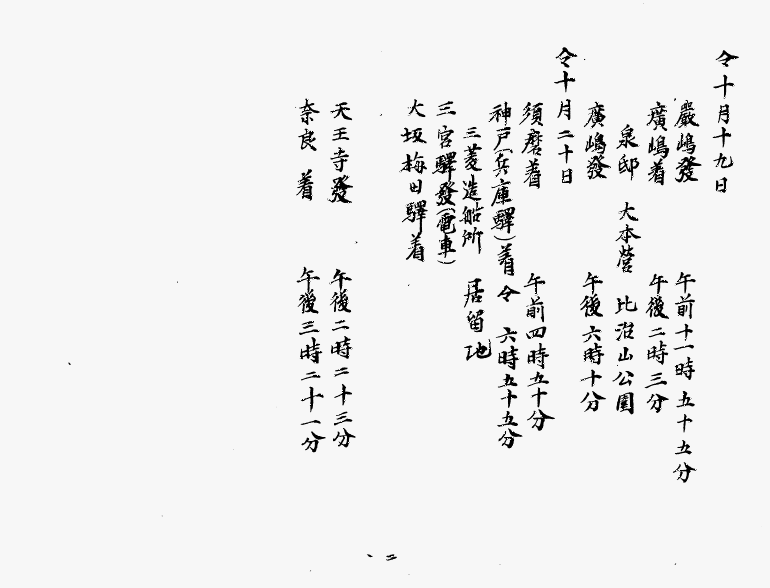 仝十月十九日
嚴嶋發 午前十一時五十五分
廣嶋着 午後二時三分
泉邸 大本營 比治山公園
廣嶋發 午後六時十分
仝十月二十日
須磨着 午前四時五十分
神戸(兵庫驛)着 仝 六時五十五分
三菱造船所 居留地
三宮驛發(電車)
大坂梅田驛着
天王寺發 午後二時二十三分
奈良 着 午後三時二十一分
二